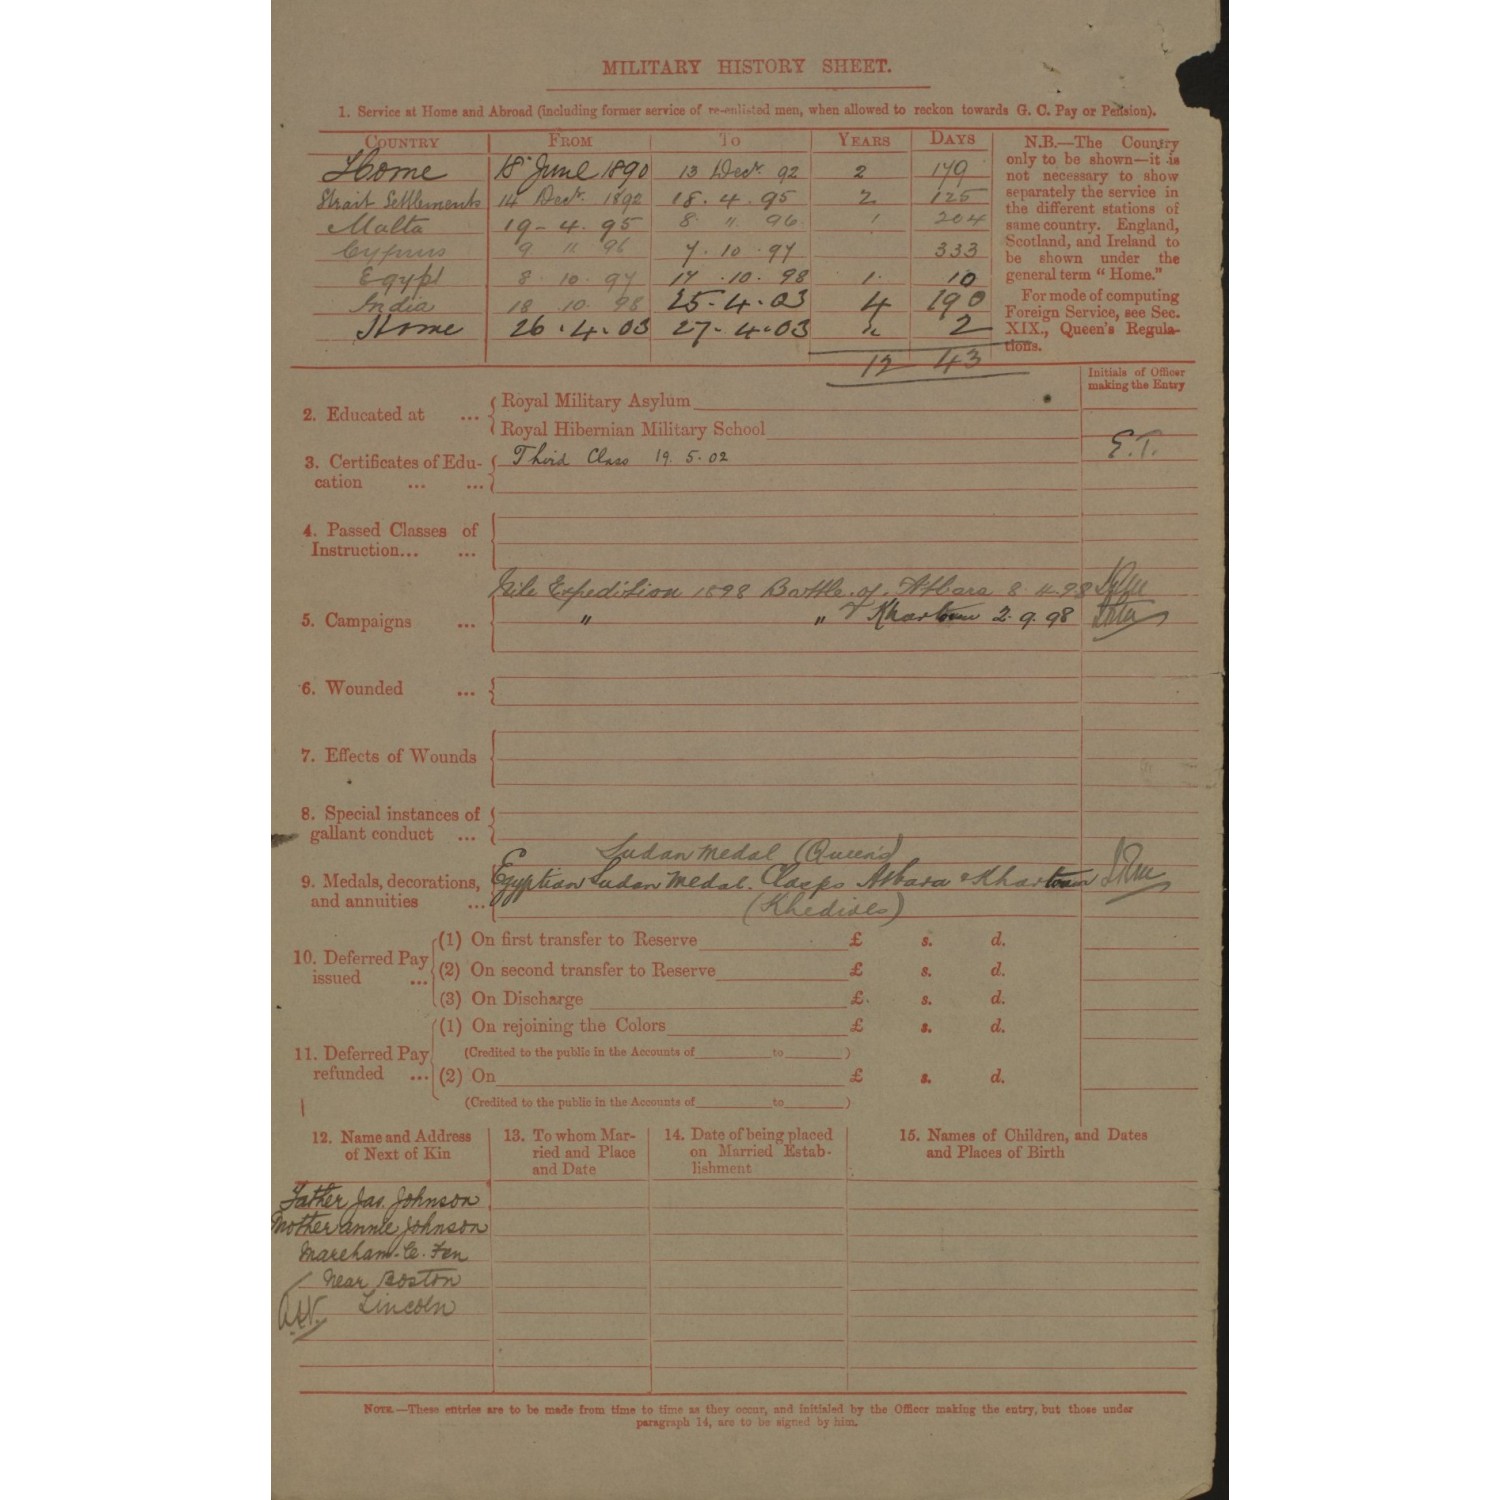 MILITARY HISTORY SHEET.
1. Service at Home and Abroad (including former service of re-enlisted men, when allowed to reckon towards G. C. Pay or Pension).
COUNTRY FROM TO YEARS DAYS
Home 18 June 1890 13 Decr. 92 2 179
Strait Settlements 14 Decr. 1892 18. 4. 95 2 125
Malta 19 - 4. 95 8 " 96 1 204
Cyprus 9 11 96 7. 10. 97 333
Egypt 8. 10. 97 17. 10. 98 1. 10
India 18 10. 98 25. 4. 03 4 190
Home 26. 4. 03 27. 4. 03 2
12 43
N.B.—The Country
only to be shown—it is
not necessary to show
separately the service in
the different stations of
same country. England,
Scotland, and Ireland to
be shown under the
general term "Home."
For mode of computing
Foreign Service, see Sec.
XIX., Queen's Regula-
tions.
Initials of Officer
making the Entry
2. Educated at ... Royal Military Asylum
Royal Hibernian Military School
3. Certificates of Edu-
cation ... ... Third Class 19. 5. 02 E.T.
4. Passed Classes of
Instruction... ...
5. Campaigns ... Nile Expedition 1898 Battle of Atbara 8 4. 98
" " Khartoum 2. 9. 98
6. Wounded ...
7. Effects of Wounds
8. Special instances of
gallant conduct ...
9. Medals, decorations,
and annuities ...
Sudan Medal (Queen's)
Egyptian Sudan Medal. Clasps Atbara & Khartoum
(Khedives)
10. Deferred Pay
issued ...
(1) On first transfer to Reserve £ s. d.
(2) On second transfer to Reserve £ s. d.
(3) On Discharge £ s. d.
11. Deferred Pay
refunded ...
(1) On rejoining the Colors £ s. d.
(Credited to the public in the Accounts of to )
(2) On £ s. d.
(Credited to the public in the Accounts of to )
12. Name and Address
of Next of Kin
13. To whom Mar-
ried and Place
and Date
14. Date of being placed
on Married Estab-
lishment
15. Names of Children, and Dates
and Places of Birth
Father Jas. Johnson
Mother Annie Johnson
Mareham. le. Fen
Near Boston
Lincoln
NOTE.—These entries are to be made from time to time as they occur, and initialed by the Officer making the entry, but those under
paragraph 14, are to be signed by him.